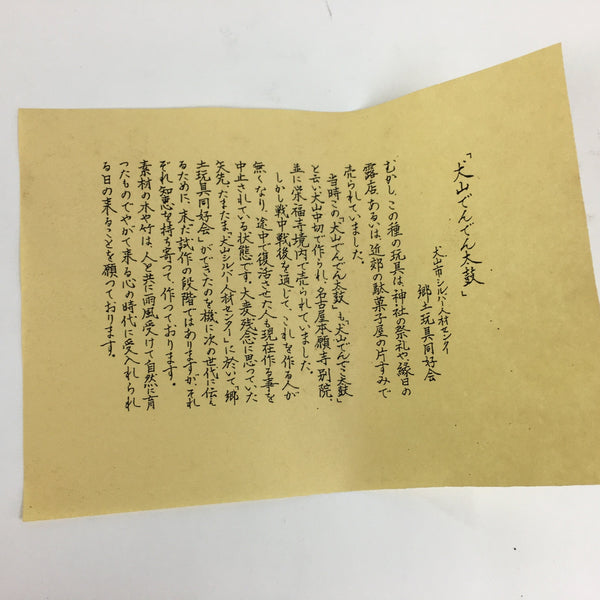 「犬山でんでん太鼓」
犬山市シルバー人材センター
郷土玩具同好会
むかし、この種の玩具は、神社の祭礼や縁日の
露店、あるいは、近郊の駄菓子屋の片すみで
売られていました。
当時この、「犬山でんでん太鼓」も、「犬山でんでこ太鼓」
と云い犬山中切で作られ、名古屋本願寺別院、
並に栄福寺境内で売られていました。
しかし戦中戦後を通じて、これを作る人が
無くなり、途中で復活させた人も現在作る事を
中止されている状態です。大変残念に思っていた
矢先、たまたま、「犬山シルバー人材センター」に於いて、「郷
土玩具同好会」ができたのを機に次の世代に伝え
るために、未だ試作の段階ではありますが、それ
ぞれ知恵を持ち寄って、作っております。
素材の木や竹は、人と共に雨風受けて自然に育
ったものでやがて来る心の時代に受入れられ
る日の来ることを願っております。